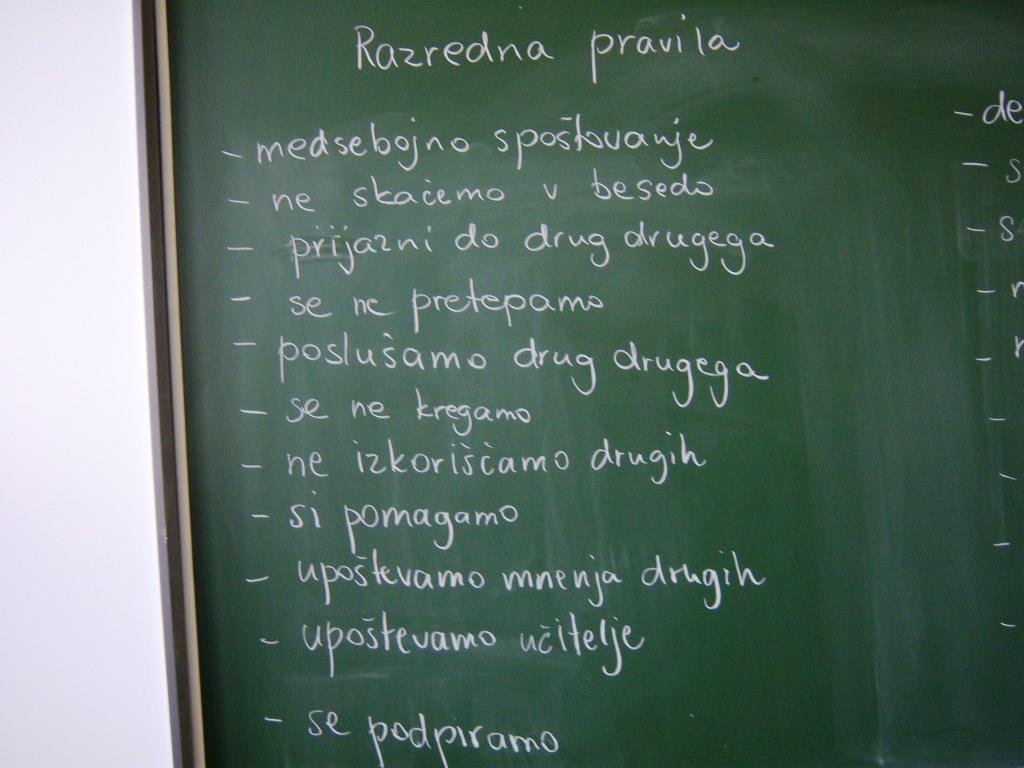 Razredna pravila
- medsebojno spoštovanje
- ne skačemo v besedo
- prijazni do drug drugega
- se ne pretepamo
- poslušamo drug drugega
- se ne kregamo
- ne izkoriščamo drugih
- si pomagamo
- upoštevamo mnenja drugih
- upoštevamo učitelje
- se podpiramo
- de
- s
- s